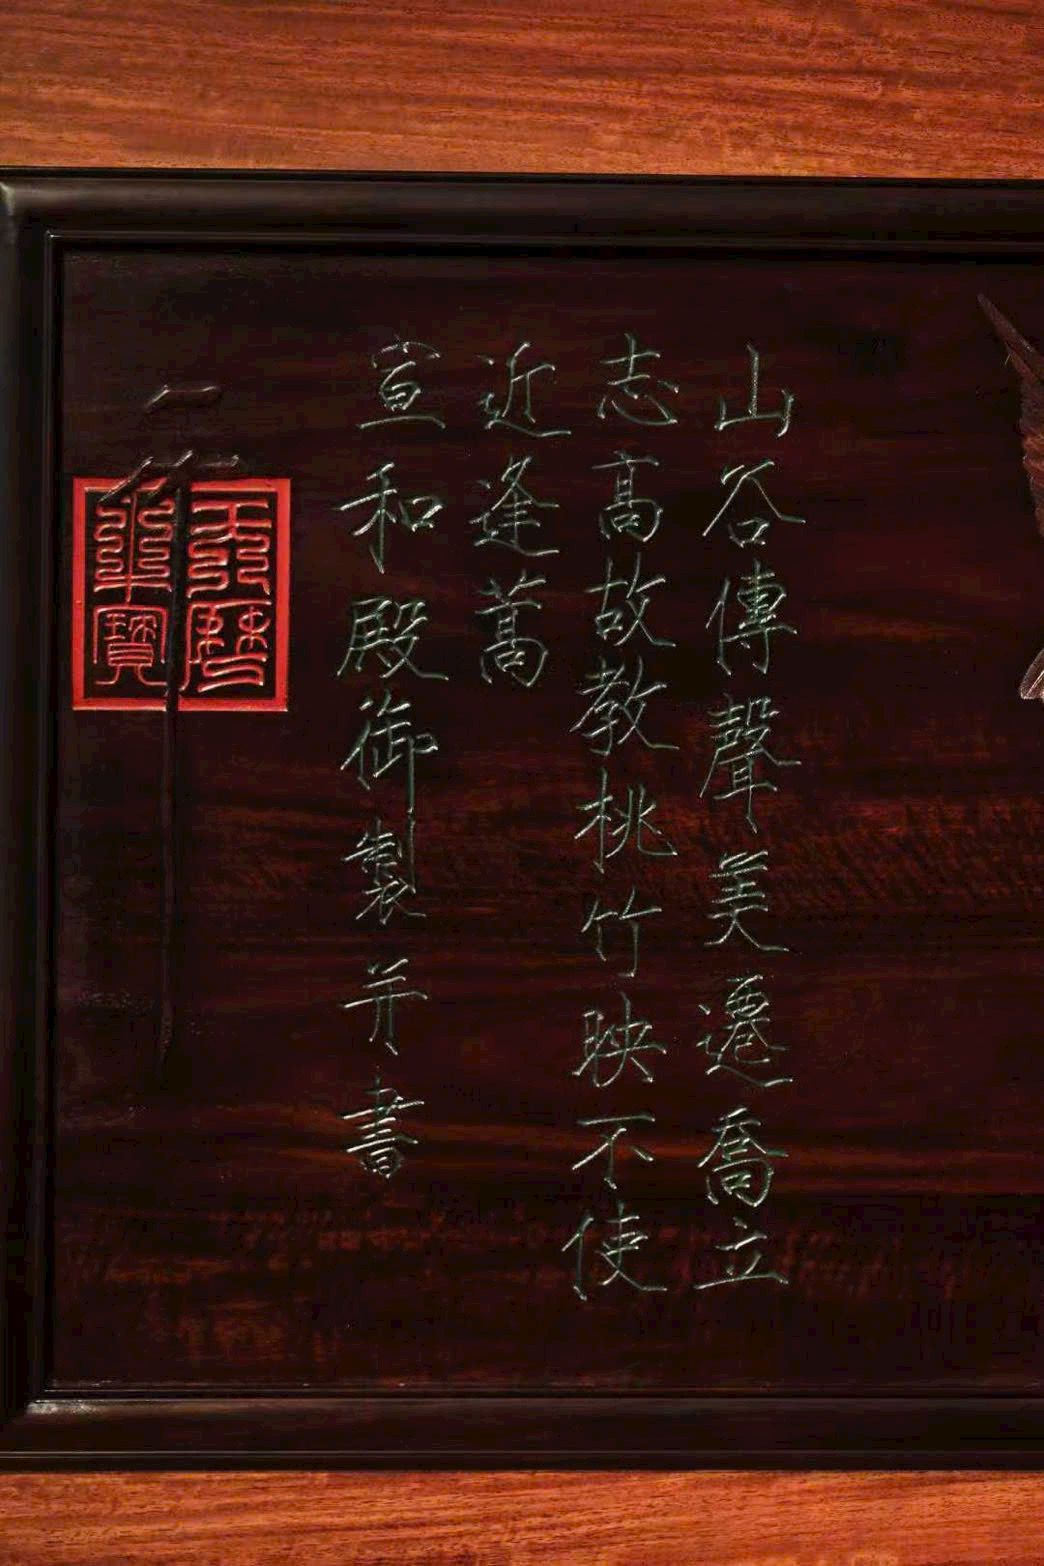 山谷傳聲美遷喬立
志高故教桃竹映不使
近逢蒿
宣和殿御製并書